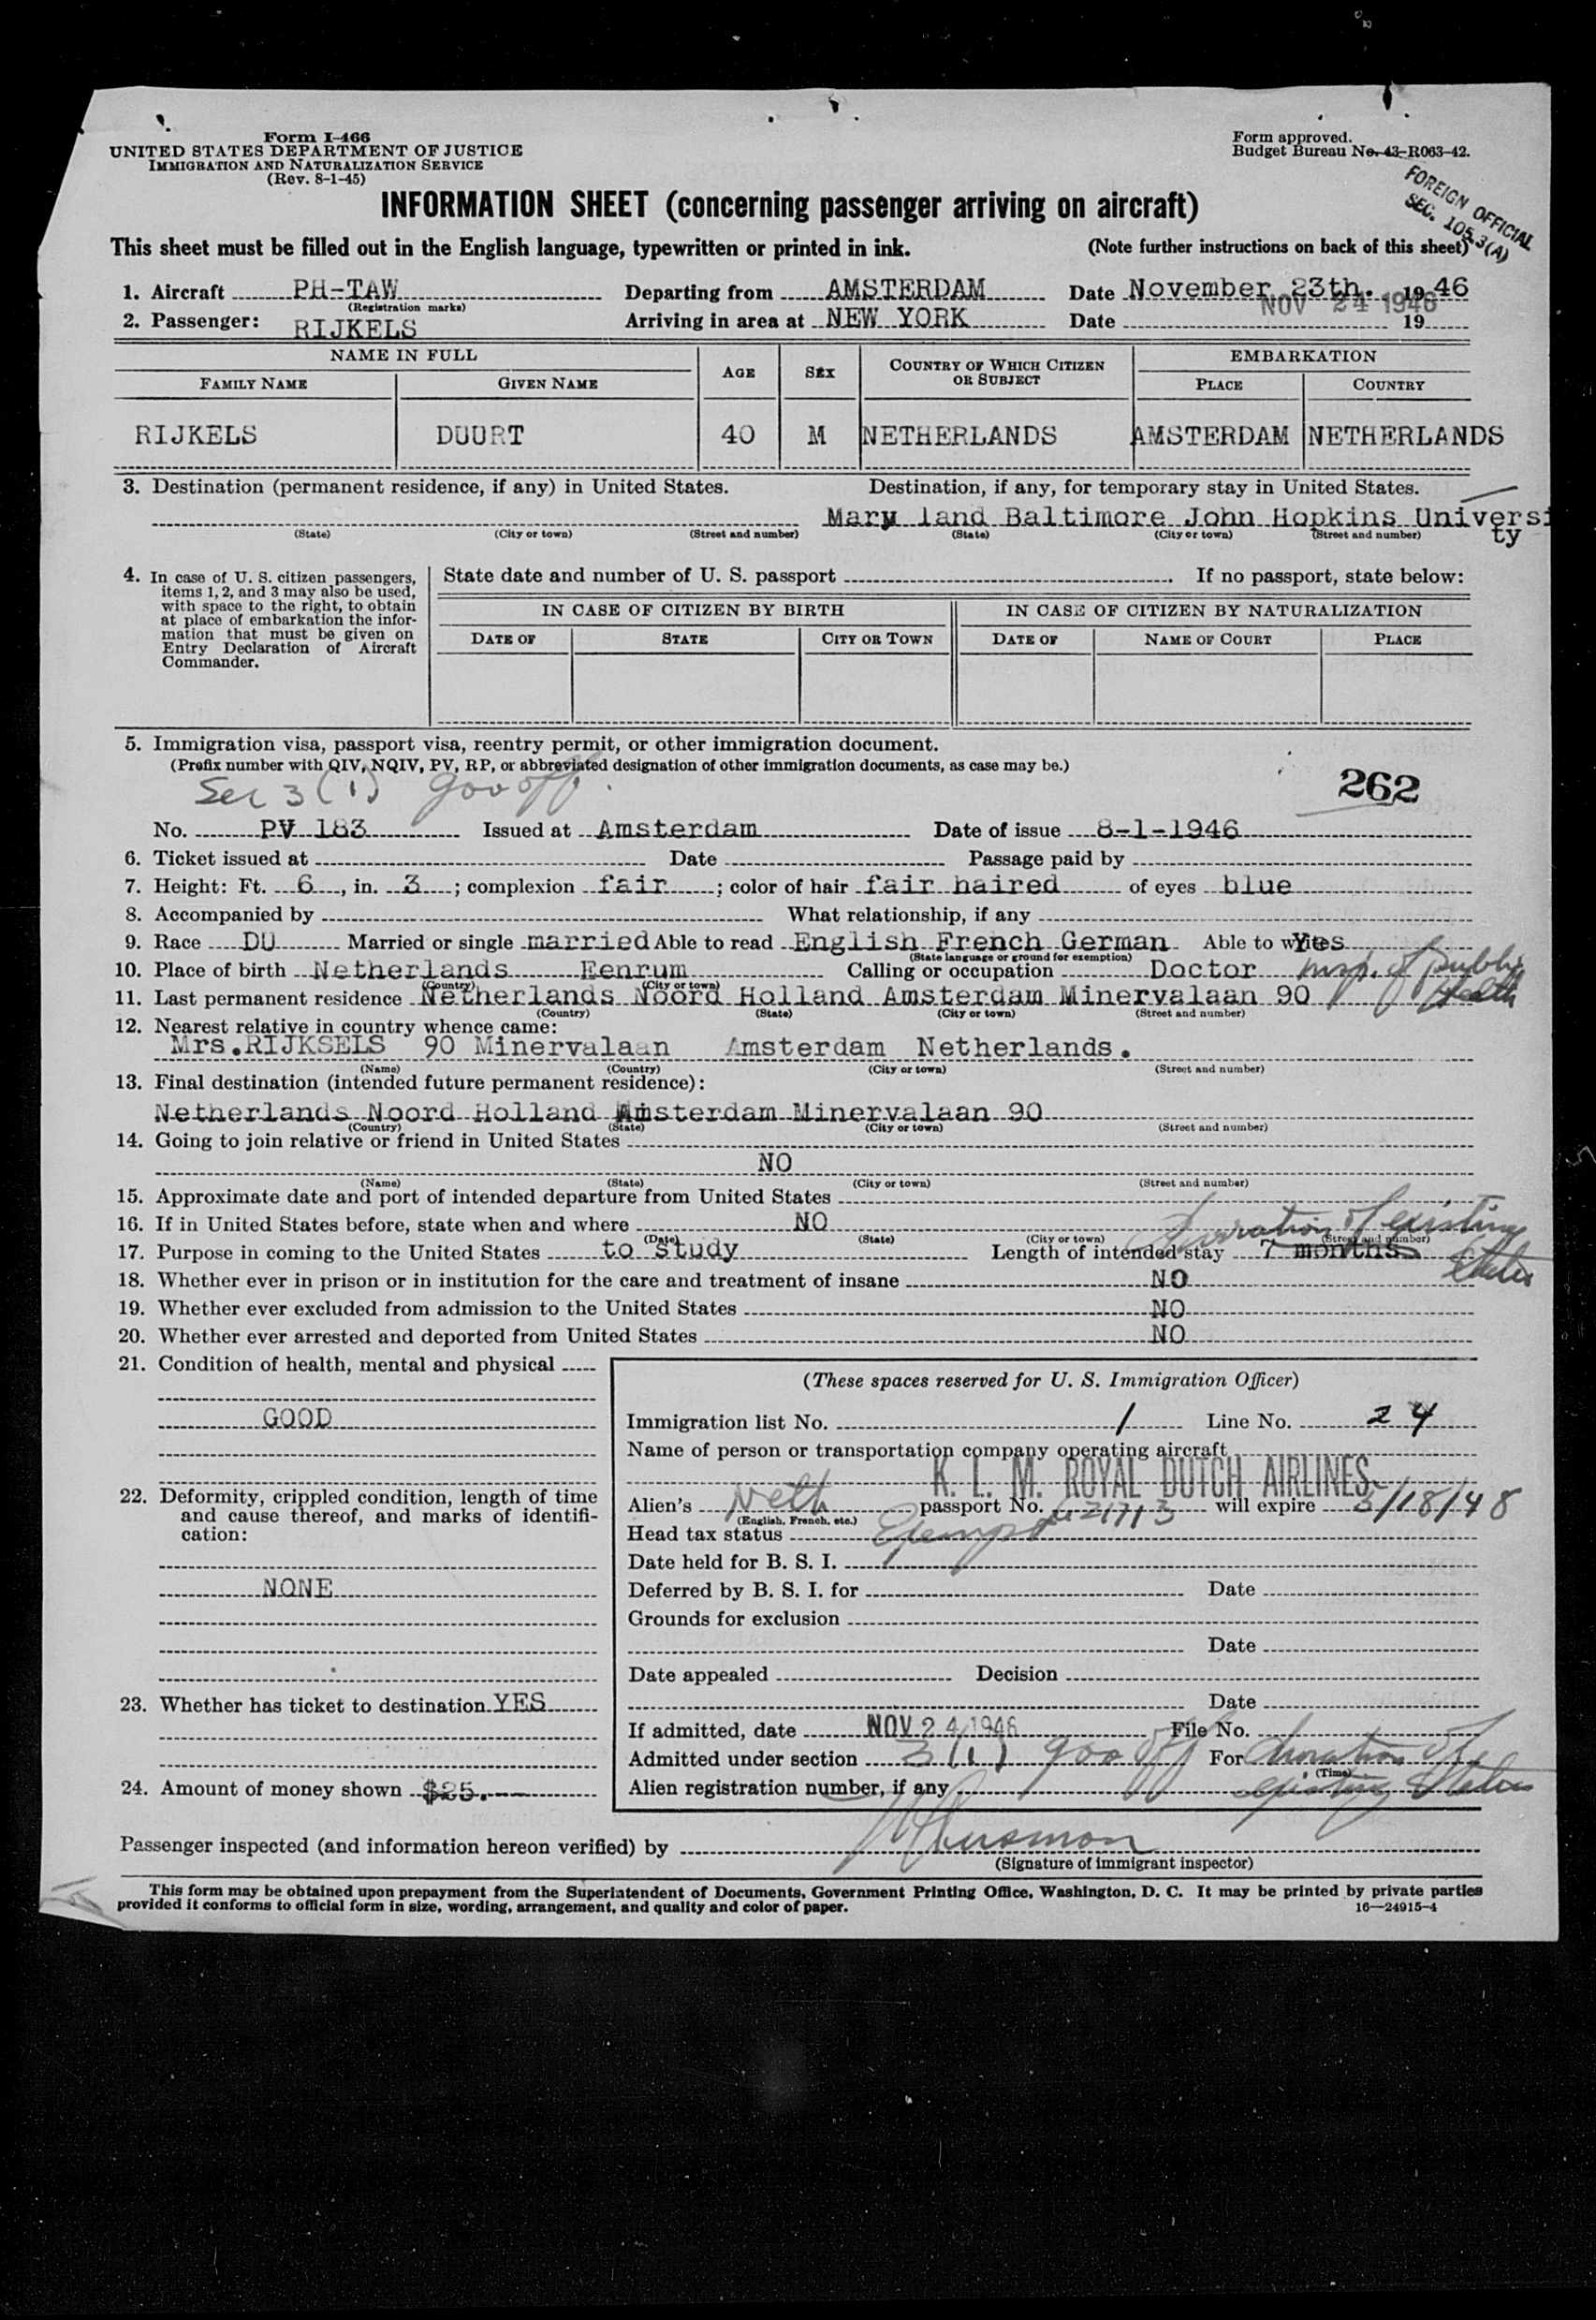 Form I-466
UNITED STATES DEPARTMENT OF JUSTICE
IMMIGRATION AND NATURALIZATION SERVICE
(Rev. 8-1-45)
Form approved.
Budget Bureau No. 43-R063-42.
FOREIGN OFFICIAL
SEC. 105.3(A)
INFORMATION SHEET (concerning passenger arriving on aircraft)
This sheet must be filled out in the English language, typewritten or printed in ink. (Note further instructions on back of this sheet)
1. Aircraft PH-TAW Departing from AMSTERDAM Date November 23th. 1946
(Registration marks) NOV 24 1946
2. Passenger: RIJKELS Arriving in area at NEW YORK Date 19
NAME IN FULL AGE SEX COUNTRY OF WHICH CITIZEN OR SUBJECT EMBARKATION
FAMILY NAME GIVEN NAME PLACE COUNTRY
RIJKELS DUURT 40 M NETHERLANDS AMSTERDAM NETHERLANDS
3. Destination (permanent residence, if any) in United States. Destination, if any, for temporary stay in United States.
Mary land Baltimore John Hopkins Universi
ty
(State) (City or town) (Street and number) (State) (City or town) (Street and number)
4. In case of U. S. citizen passengers, items 1, 2, and 3 may also be used, with space to the right, to obtain at place of embarkation the information that must be given on Entry Declaration of Aircraft Commander.
State date and number of U. S. passport If no passport, state below:
IN CASE OF CITIZEN BY BIRTH IN CASE OF CITIZEN BY NATURALIZATION
DATE OF STATE CITY OR TOWN DATE OF NAME OF COURT PLACE
5. Immigration visa, passport visa, reentry permit, or other immigration document.
(Prefix number with QIV, NQIV, PV, RP, or abbreviated designation of other immigration documents, as case may be.)
Sec 3 (1) gov off. 262
No. PV 183 Issued at Amsterdam Date of issue 8-1-1946
6. Ticket issued at Date Passage paid by
7. Height: Ft. 6, in. 3; complexion fair; color of hair fair haired of eyes blue
8. Accompanied by What relationship, if any
9. Race DU Married or single married Able to read English French German Able to write Yes
(State language or ground for exemption)
10. Place of birth Netherlands Eenrum Calling or occupation Doctor insp. of public health
(Country) (City or town)
11. Last permanent residence Netherlands Noord Holland Amsterdam Minervalaan 90
(Country) (State) (City or town) (Street and number)
12. Nearest relative in country whence came:
Mrs.RIJKSELS 90 Minervalaan Amsterdam Netherlands.
(Name) (Country) (City or town) (Street and number)
13. Final destination (intended future permanent residence):
Netherlands Noord Holland Amsterdam Minervalaan 90
(Country) (State) (City or town) (Street and number)
14. Going to join relative or friend in United States
NO
(Name) (State) (City or town) (Street and number)
15. Approximate date and port of intended departure from United States
16. If in United States before, state when and where NO
(Date) (State) (City or town) (Street and number)
Duration of existing Status
17. Purpose in coming to the United States to study Length of intended stay 7 months
18. Whether ever in prison or in institution for the care and treatment of insane NO
19. Whether ever excluded from admission to the United States NO
20. Whether ever arrested and deported from United States NO
21. Condition of health, mental and physical
GOOD
22. Deformity, crippled condition, length of time and cause thereof, and marks of identification:
NONE
23. Whether has ticket to destination YES
24. Amount of money shown $25.--
(These spaces reserved for U. S. Immigration Officer)
Immigration list No. 1 Line No. 24
Name of person or transportation company operating aircraft
K. L. M. ROYAL DUTCH AIRLINES
Alien's Neth passport No. will expire 3/18/48
(English, French, etc.)
Head tax status Exempt
Date held for B. S. I.
Deferred by B. S. I. for Date
Grounds for exclusion
Date
Date appealed Decision
Date
If admitted, date NOV 24 1946 File No.
Admitted under section 3 (1) gov off For duration of
(Time)
Alien registration number, if any existing Status
Passenger inspected (and information hereon verified) by
(Signature of immigrant inspector)
This form may be obtained upon prepayment from the Superintendent of Documents, Government Printing Office, Washington, D. C. It may be printed by private parties
provided it conforms to official form in size, wording, arrangement, and quality and color of paper. 16—24915-4